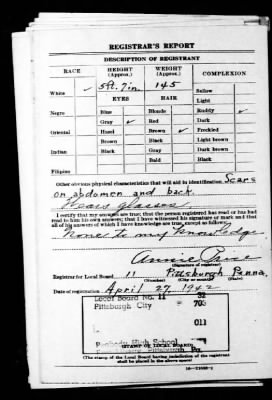 REGISTRAR'S REPORT
DESCRIPTION OF REGISTRANT
RACE HEIGHT (Approx.) WEIGHT (Approx.) COMPLEXION
White ✓ 5 ft. 7 in. 145 Sallow
EYES HAIR Light
Negro Blue Blonde Ruddy ✓
Gray ✓ Red Dark
Oriental Hazel Brown ✓ Freckled
Brown Black Light brown
Indian Black Gray Dark brown
Bald Black
Filipino
Other obvious physical characteristics that will aid in identification Scars
on abdomen and back.
Wears glasses
I certify that my answers are true; that the person registered has read or has had
read to him his own answers; that I have witnessed his signature or mark and that
all of his answers of which I have knowledge are true, except as follows:
None to my knowledge
Annie
(Signature of registrar)
Registrar for Local Board 11 Pittsburgh Penna.
(Number) (City or county) (State)
Date of registration April 27, 1942
Local Board No. 11 32
Pittsburgh City
011
Peabody High School
Pittsburgh, Pa.
(STAMP OF LOCAL BOARD)
(The stamp of the Local Board having jurisdiction of the registrant
shall be placed in the above space)